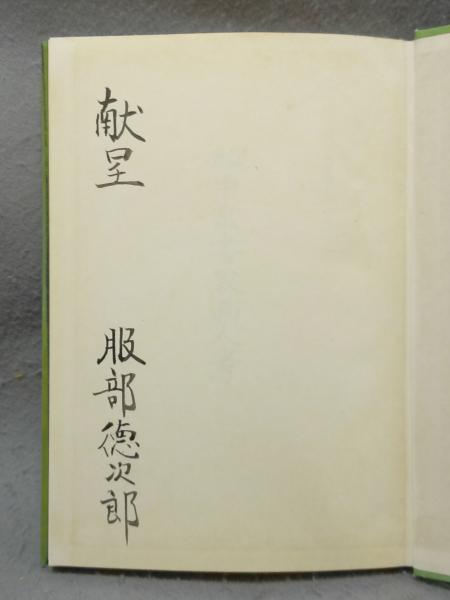 献呈
服部徳次郎